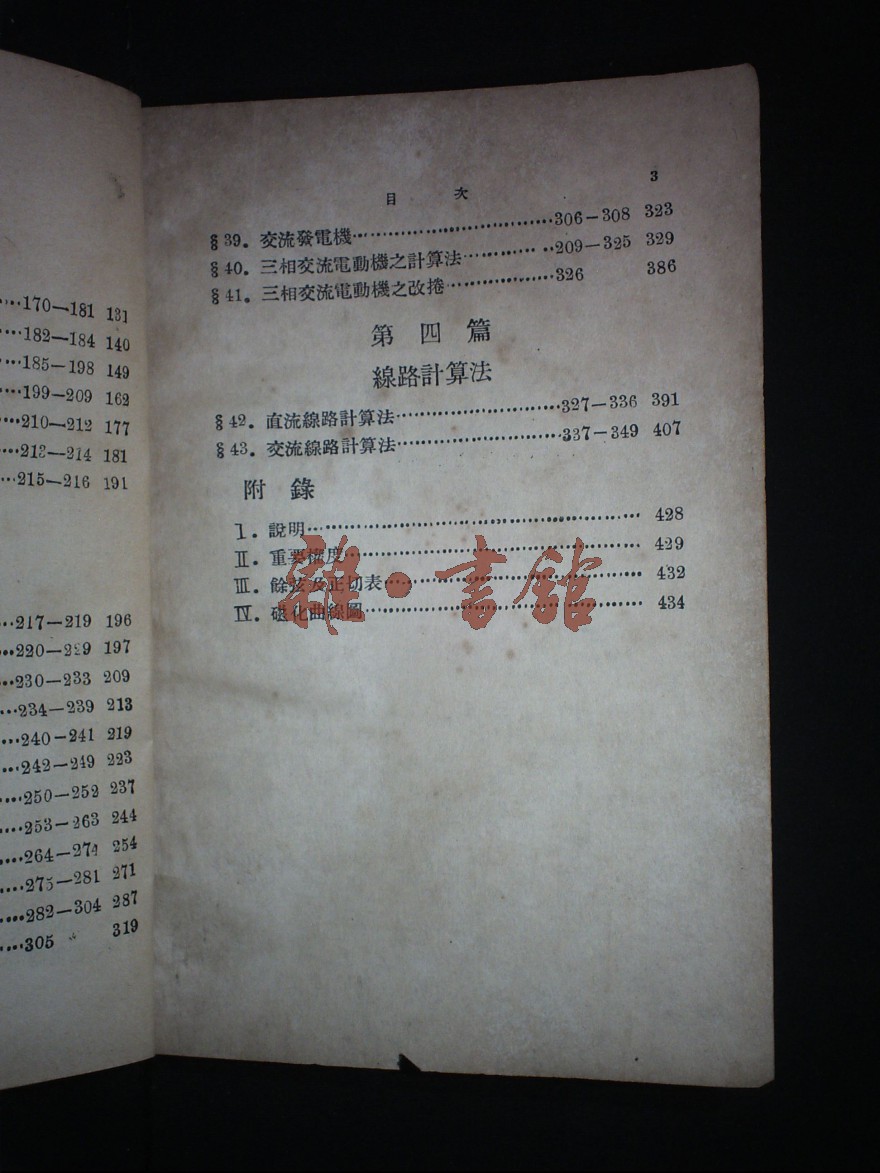 …170—181 131
…182—184 140
…185—198 149
…199—209 162
…210—212 177
…213—214 181
…215—216 191
…217—219 196
…220—229 197
…230—233 209
…234—239 213
…240—241 219
…242—249 223
…250—252 237
…253—263 244
…264—274 254
…275—281 271
…282—304 287
…305 319
目 次 3
§39. 交流發電機…306—308 323
§40. 三相交流電動機之計算法…209—325 329
§41. 三相交流電動機之改捲…326 386
第四篇
線路計算法
§42. 直流線路計算法…327—336 391
§43. 交流線路計算法…337—349 407
附錄
I. 說明…428
II. 重要梳度…429
III. 餘弦及正切表…432
IV. 磁化曲線圖…434
雜·書館